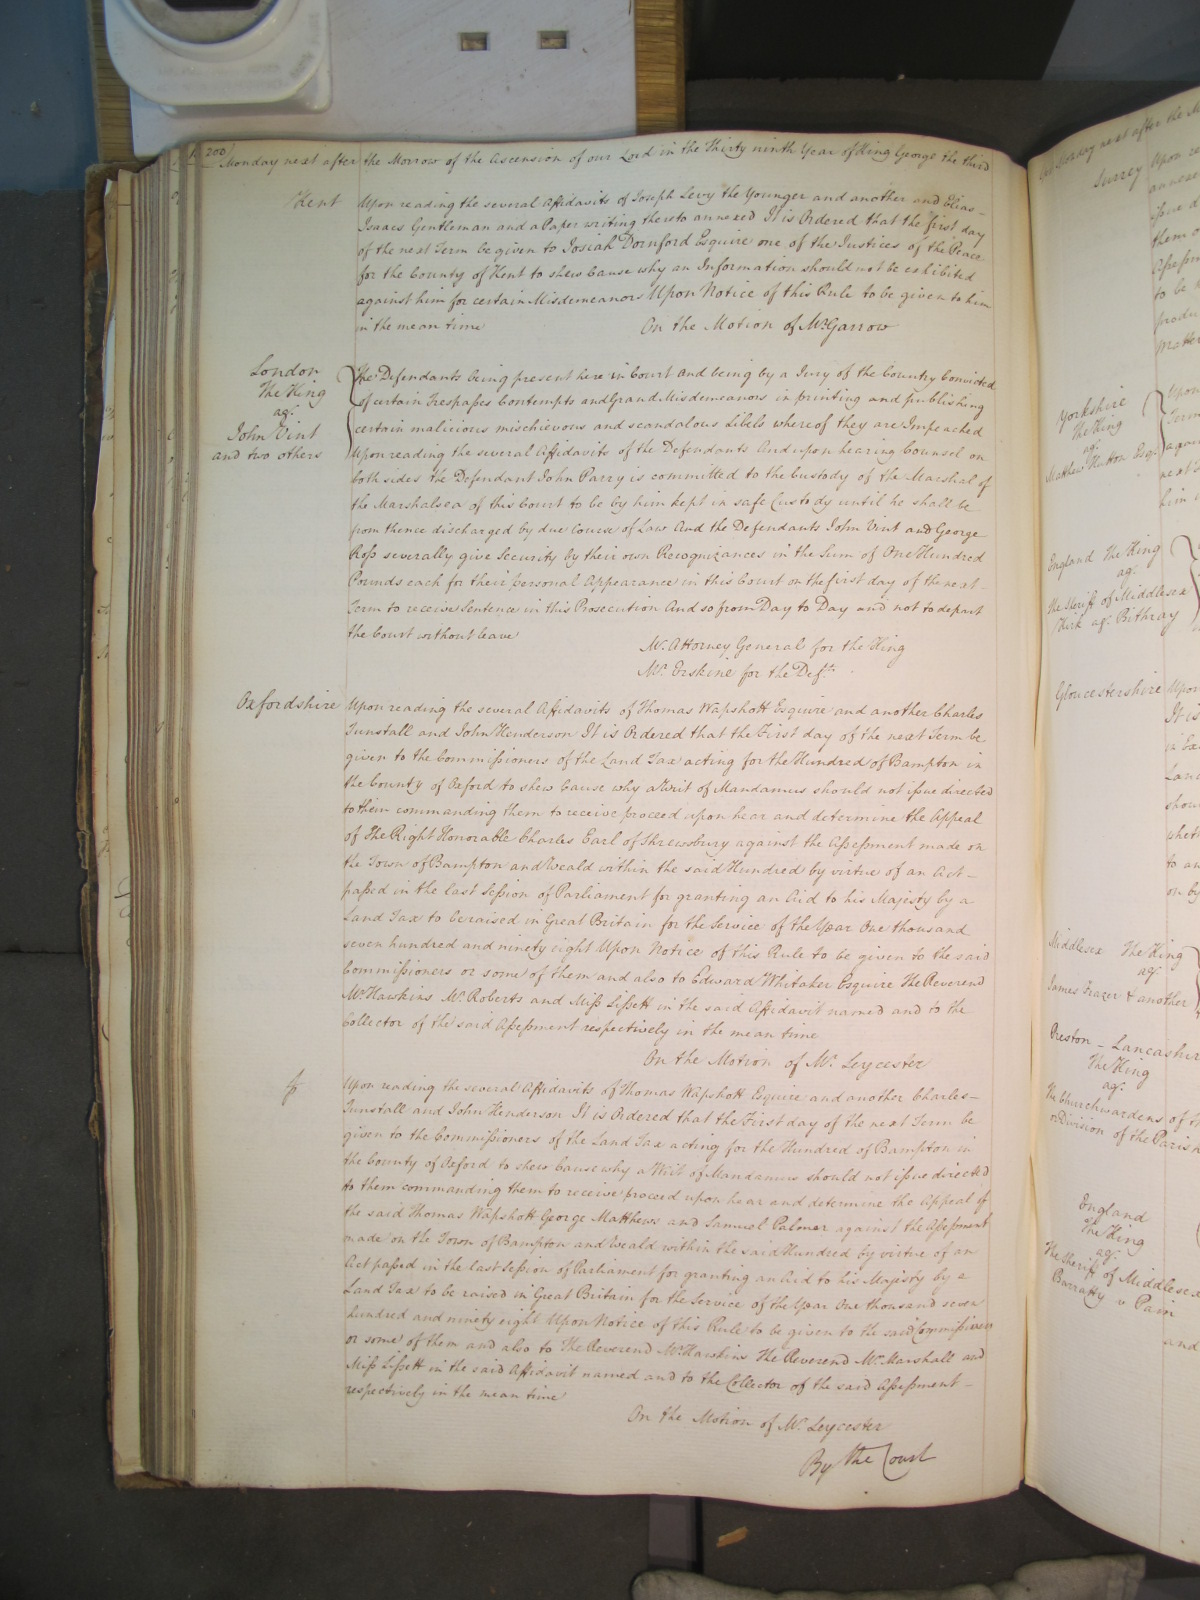 200
Monday next after the Morrow of the Ascension of our Lord in the Thirty ninth Year of King George the third
Kent
Upon reading the several Affidavits of Joseph Levy the Younger and another and Elias
Isaacs Gentleman and a Paper writing thereto annexed It is Ordered that the first day
of the next Term be given to Josiah Dornford Esquire one of the Justices of the Peace
for the County of Kent to shew Cause why an Information should not be exhibited
against him for certain Misdemeanors Upon Notice of this Rule to be given to him
in the mean time
On the Motion of Mr. Garrow
London
The King
agt.
John Vint
and two others
The Defendants being present here in Court and being by a Jury of the Country Convicted
of certain Trespasses Contempts and Grand Misdemeanors in printing and publishing
certain malicious mischievous and scandalous libels whereof they are Impeached
Upon reading the several Affidavits of the Defendants And upon hearing Counsel on
both sides the Defendant John Parry is committed to the Custody of the Marshal of
the Marshalsea of this Court to be by him kept in safe Custody until he shall be
from thence discharged by due Course of Law And the Defendants John Vint and George
Ross severally give Security by their own Recognizances in the Sum of One Hundred
Pounds each for their personal Appearance in this Court on the first day of the next
Term to receive Sentence in this Prosecution And so from Day to Day and not to depart
the Court without leave
Mr. Attorney General for the King
Mr. Erskine for the Defts.
Oxfordshire
Upon reading the several Affidavits of Thomas Wapshott Esquire and another Charles
Tunstall and John Henderson It is Ordered that the First day of the next Term be
given to the Commissioners of the Land Tax acting for the Hundred of Bampton in
the County of Oxford to shew Cause why a Writ of Mandamus should not issue directed
to them commanding them to receive proceed upon hear and determine the Appeal
of The Right Honorable Charles Earl of Shrewsbury against the Assessment made on
the Town of Bampton and Weald within the said Hundred by virtue of an Act
passed in the last Session of Parliament for granting an Aid to his Majesty by a
Land Tax to be raised in Great Britain for the Service of the Year One thousand
seven hundred and ninety eight Upon Notice of this Rule to be given to the said
Commissioners or some of them and also to Edward Whitaker Esquire The Reverend
Mr. Hawkins Mr. Roberts and Miss Lissett in the said Affidavit named and to the
Collector of the said Assessment respectively in the mean time
On the Motion of Mr. Leycester
Upon reading the several Affidavits of Thomas Wapshott Esquire and another Charles
Tunstall and John Henderson It is Ordered that the First day of the next Term be
given to the Commissioners of the Land Tax acting for the Hundred of Bampton in
the County of Oxford to shew Cause why a Writ of Mandamus should not issue directed
to them commanding them to receive proceed upon hear and determine the Appeal of
the said Thomas Wapshott George Matthews and Samuel Palmer against the Assessment
made on the Town of Bampton and Weald within the said Hundred by virtue of an
Act passed in the last Session of Parliament for granting an Aid to his Majesty by a
Land Tax to be raised in Great Britain for the Service of the Year One thousand seven
hundred and ninety eight Upon Notice of this Rule to be given to the said Commissioners
or some of them and also to The Reverend Mr. Hawkins The Reverend Mr. Marshall and
Miss Lissett in the said Affidavit named and to the Collector of the said Assessment
respectively in the mean time
On the Motion of Mr. Leycester
By the Court
Monday next after the
Surrey
Upon
Yorkshire
The King
agt.
Matthew Hutton Esqr.
England The King
agt.
The Sheriff of Middlesex
Kirk agt. Bithray
Gloucestershire
Upon
It is
Middlesex The King
agt.
James Frazer & another
Preston - Lancashire
The King
agt.
The Churchwardens of
or Division of the Parish
England
The King
agt.
The Sheriff of Middlesex
Barratty v Pain
and